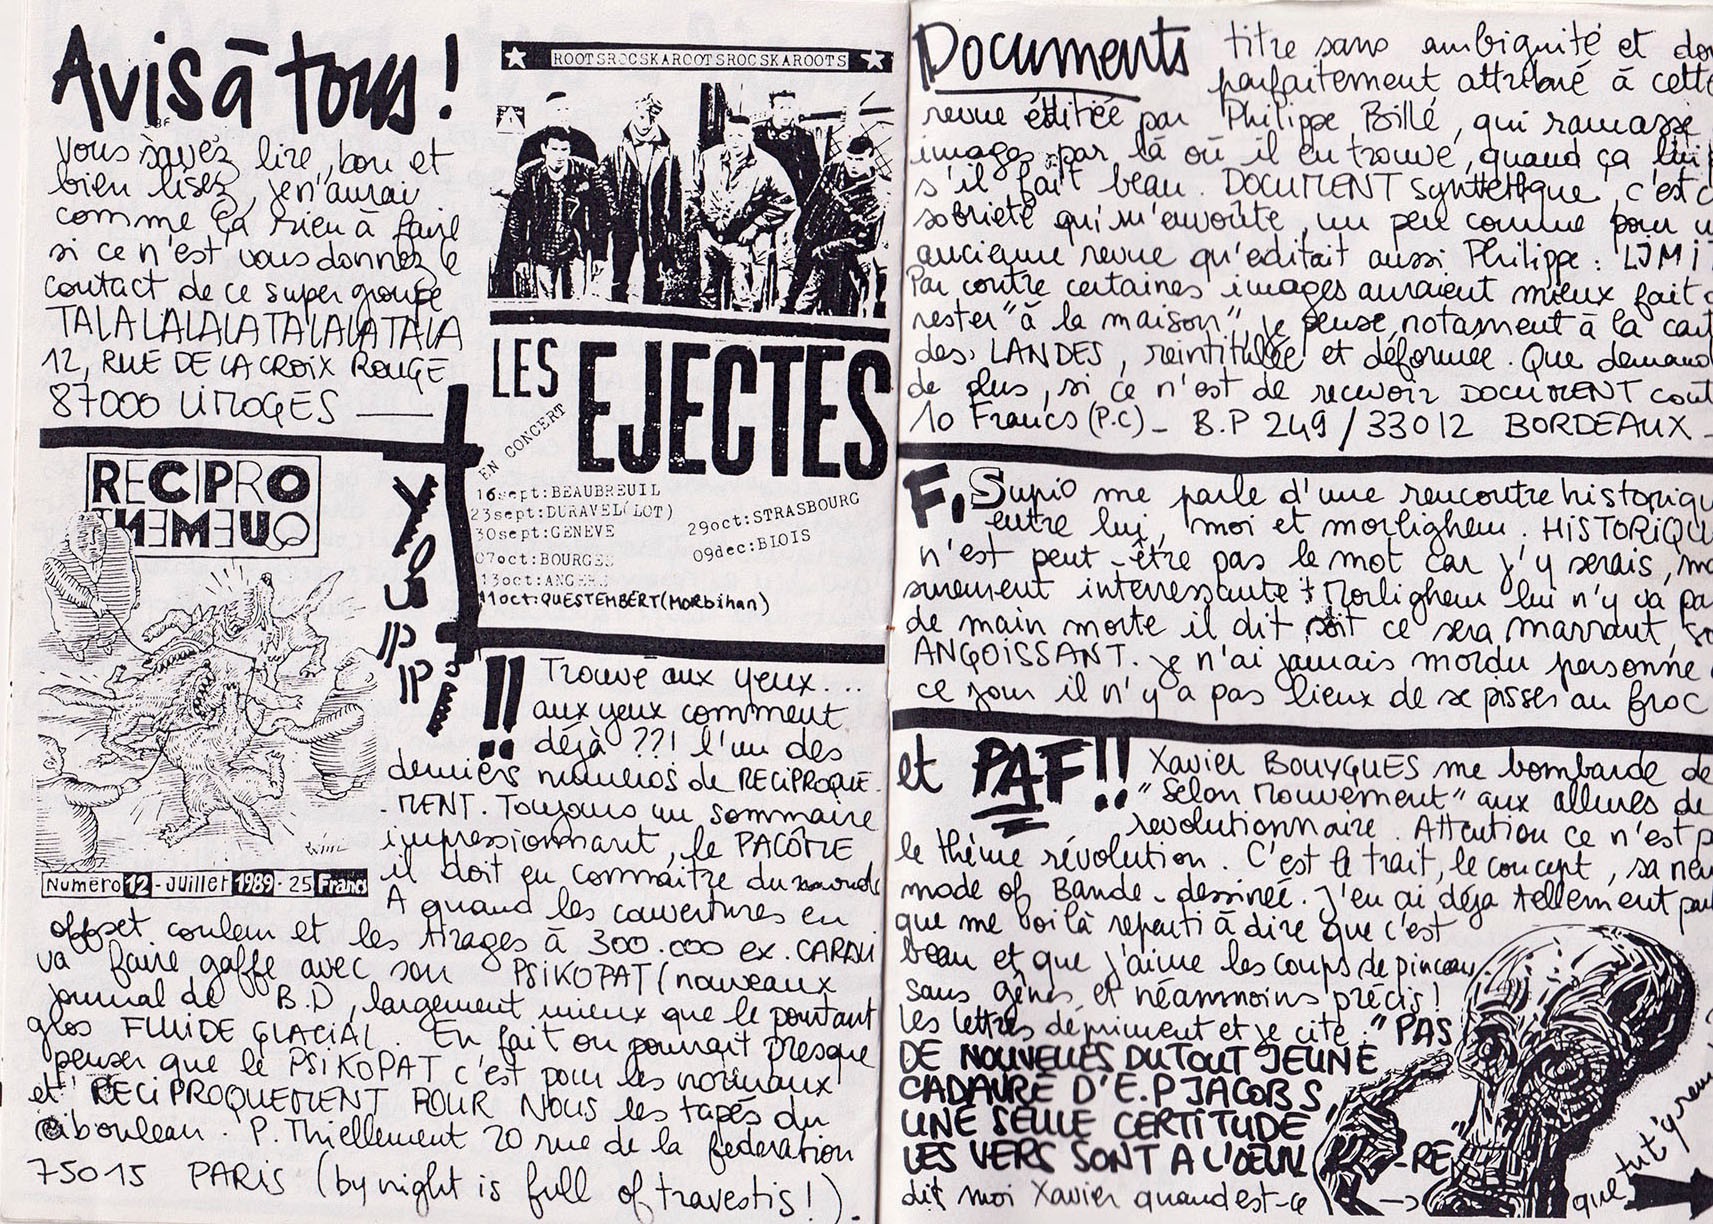 Avis à tous !
Vous savez lire, bon et
bien lisez, je n'aurai
comme ça rien à faire
si ce n'est vous donnez le
contact de ce super groupe
TALALALALATALALATALA
12, RUE DE LA CROIX ROUGE
87000 LIMOGES
ROOTSROCSKAROOTSROCSKAROOTS
LES EJECTES
EN CONCERT
16sept:BEAUBREUIL
23sept:DURAVEL(LOT)
30sept:GENEVE
07oct:BOURGES
13oct:ANGERS
11oct:QUESTEMBERT(Morbihan)
29oct:STRASBOURG
09dec:BlOIS
RECIPRO
QUEMENT
Numéro 12 - Juillet 1989 - 25 Francs
Youppi
!! Trouvé aux yeux....
aux yeux comment
déjà ??! l'un des
derniers numéros de RECIPROQUE-
-MENT. Toujours un sommaire
impressionnant, le PACÔME
il doit en connaitre du monde
A quand les couvertures en
offset couleur et les tirages à 300.000 ex. CARALI
va faire gaffe avec son PSIKOPAT (nouveaux
journal de B.D, largement mieux que le pourtant
glos FLUIDE GLACIAL. En fait on pourrait presque
penser que le PSIKOPAT c'est pour les normaux
et RECIPROQUEMENT POUR NOUS les tapés du
cibouleau. P. Thiellement 20 rue de la federation
75015 PARIS (by night is full of travestis !).
Documents titre sans ambiguité et don
parfaitement attribué à cette
revue éditée par Philippe Billé, qui ramasse
images par là où il en trouve, quand ça lui p
s'il fait beau. DOCUMENT synthétique, c'est c
sobriété qui m'envoûte, un peu comme pour u
ancienne revue qu'éditait aussi Philippe : LIMIT
Par contre certaines images auraient mieux fait d
rester "à la maison", je pense, notamment à la cart
des LANDES, réintitulée et déformée. Que demand
de plus, si ce n'est de recevoir DOCUMENT cout
10 Francs (P.C) - B.P 249 / 33012 BORDEAUX -
F. Supio me parle d'une rencontre historiqu
entre lui, moi et morlighem. HISTORIQU
n'est peut-être pas le mot car j'y serais, ma
surement interressante + Morlighem lui n'y va pa
de main morte il dit soit ce sera marrant, so
ANGOISSANT. je n'ai jamais mordu personne
ce jour il n'y a pas lieux de se pisser au froc
et PAF!! Xavier BOUYGUES me bombarde de
"Selon Mouvement" aux allures de
revolutionnaire. Attention ce n'est p
le thème révolution. C'est le trait, le concept, sa new
mode of Bande-dessinée. J'en ai déja tellement parl
que me voilà reparti à dire que c'est
beau et que j'aime les coups de pinceau
sans gênes, et néammoins précis !
Les lettres dépriment et je cite : "PAS
DE NOUVELLES DU TOUT JEUNE
CADAVRE D'E.P JACOBS,
UNE SEULE CERTITUDE
LES VERS SONT A L'OEUV -RE"
dit moi Xavier quand est-ce -> que tut'y rem